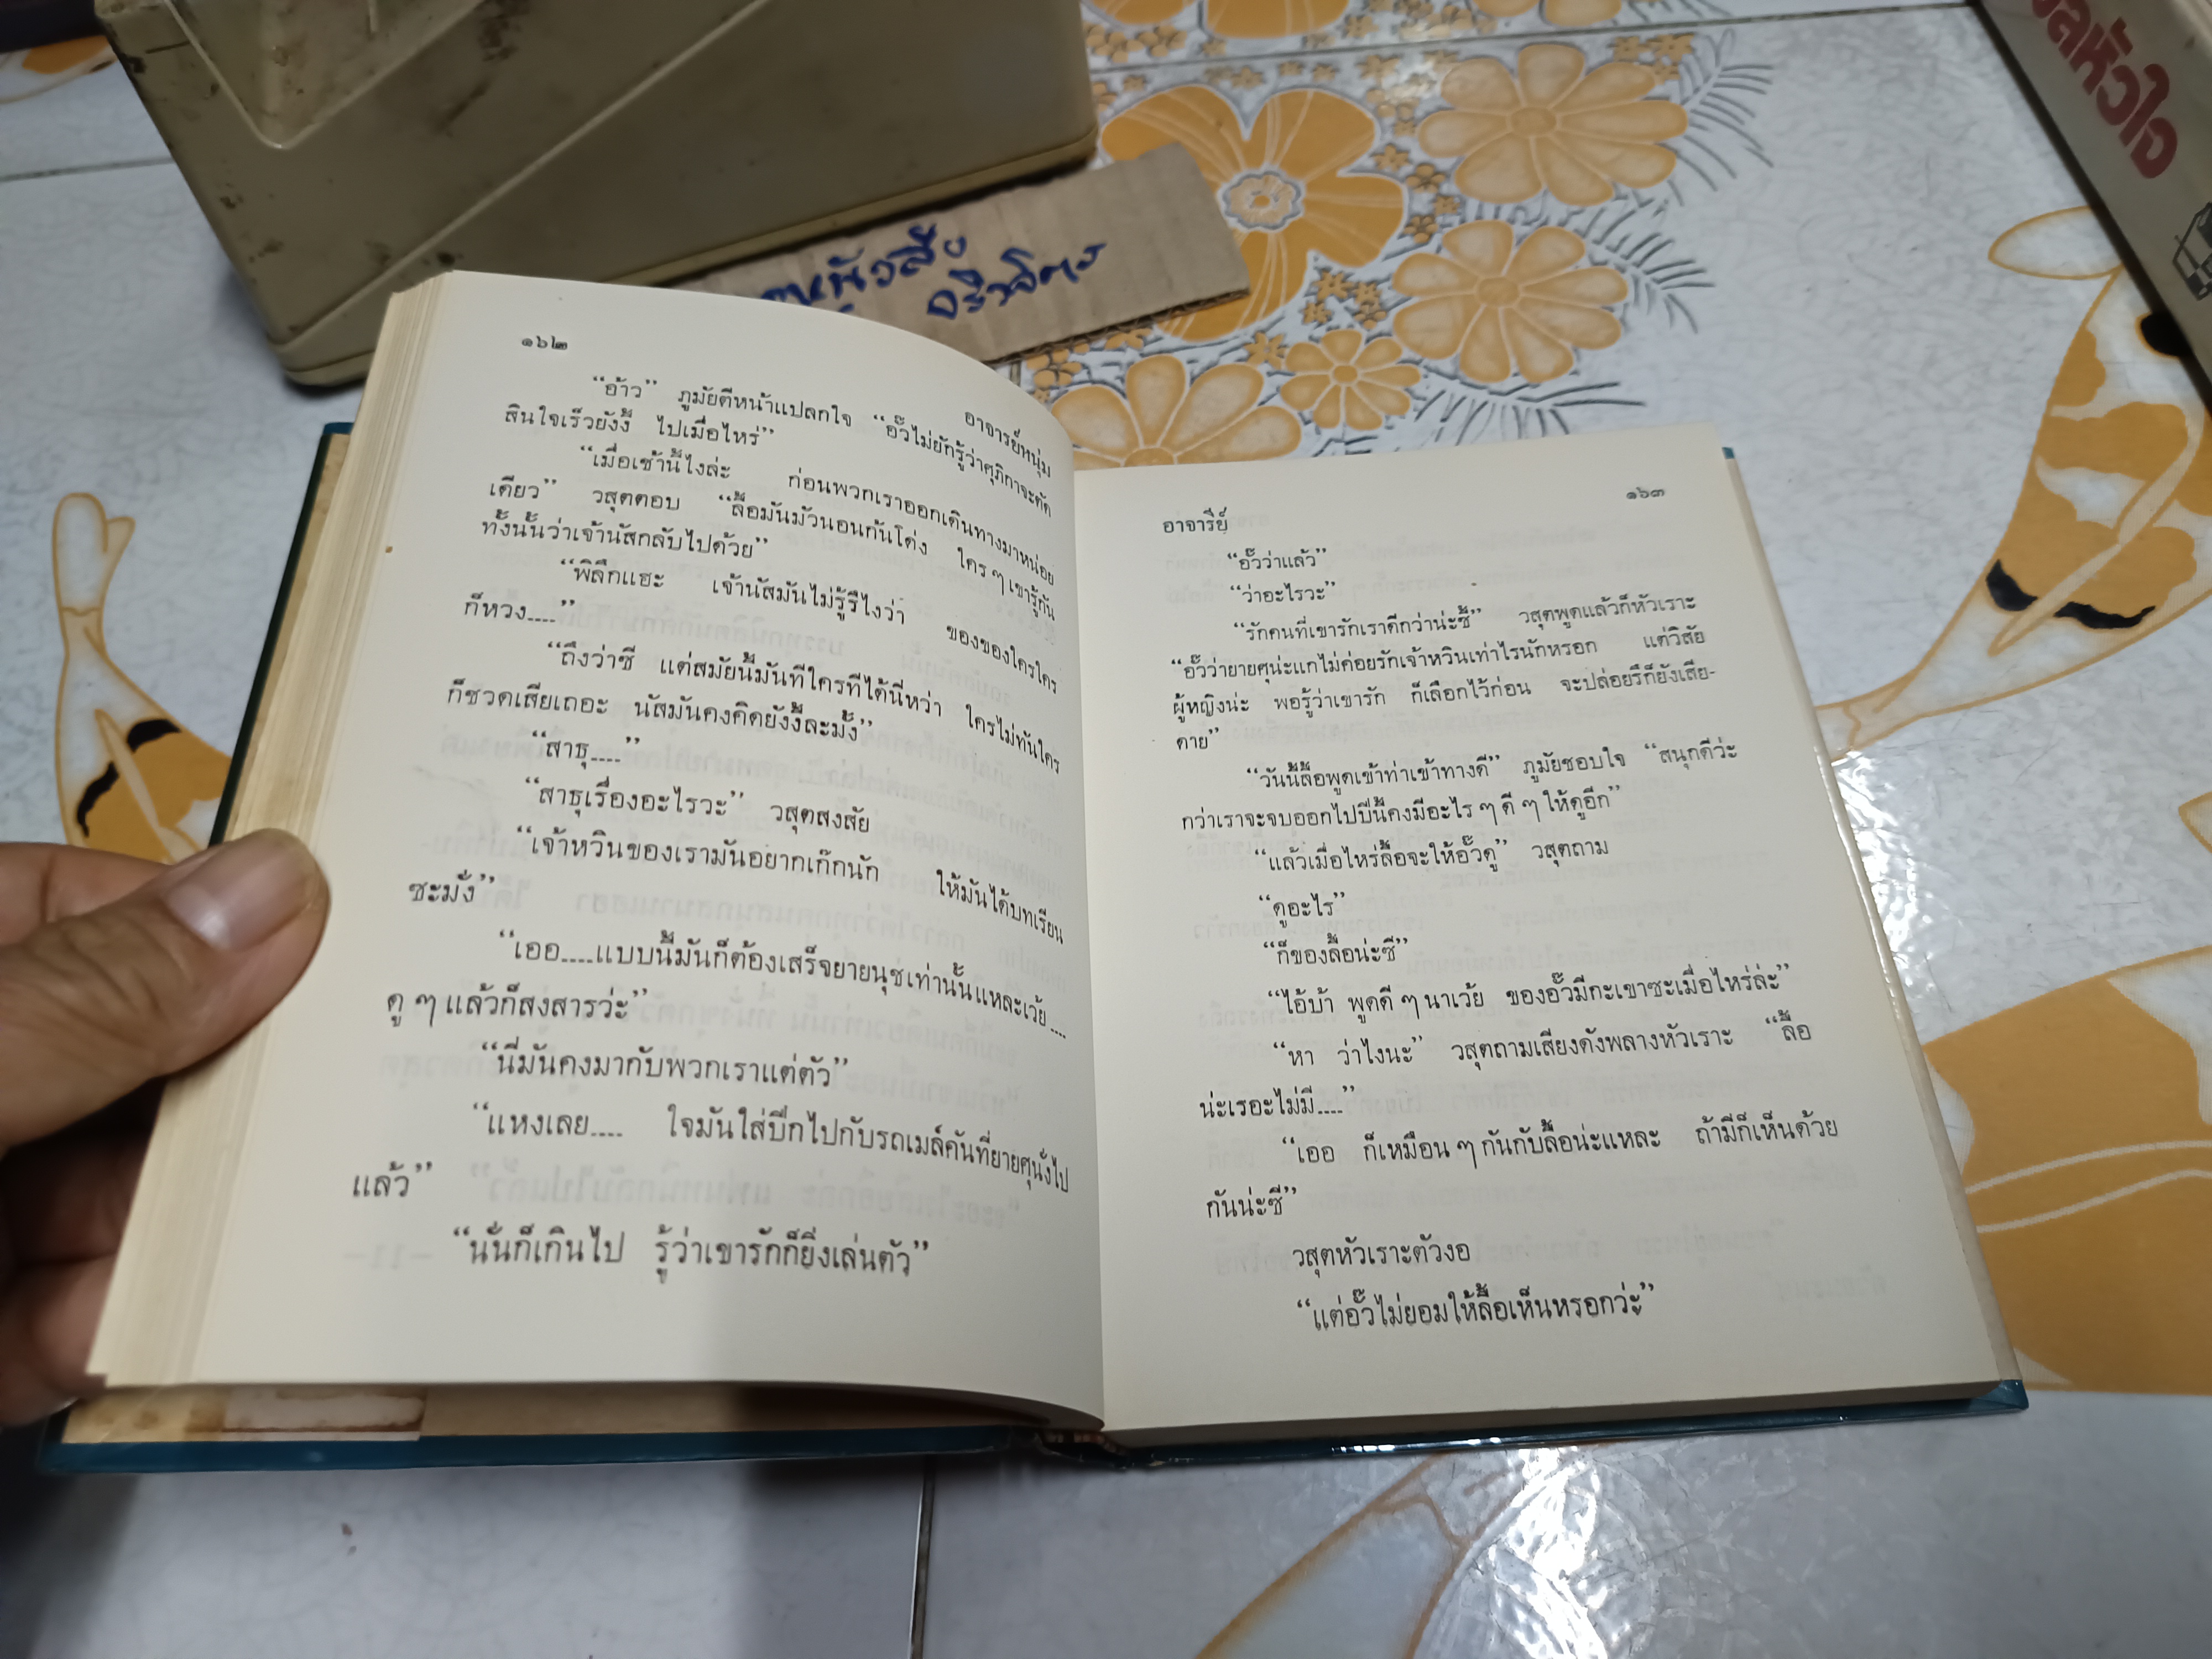 ๑๖๒
อาจารย์หนุ่ม
“อ้าว” ภูมัยตีหน้าแปลกใจ “อั๊วไม่ยักรู้ว่าศุภิกาจะตัด
สินใจเร็วยังงี้ ไปเมื่อไหร่”
“เมื่อเช้านี้ไงล่ะ ก่อนพวกเราออกเดินทางมาหน่อย
เดียว” วสุตตอบ “ลื้อมันมัวนอนกันโด่ง ใคร ๆ เขารู้กัน
ทั้งนั้นว่าเจ้านัสกลับไปด้วย”
“พิลึกแฮะ เจ้านัสมันไม่รู้รึไงว่า ของของใครใคร
ก็หวง....”
“ถึงว่าซี แต่สมัยนี้มันทีใครทีได้นี่หว่า ใครไม่ทันใคร
ก็ชวดเสียเถอะ นัสมันคงคิดยังงี้ละมั้ง”
“สาธุ....”
“สาธุเรื่องอะไรวะ” วสุตสงสัย
“เจ้าหวินของเรามันอยากเก๊กนัก ให้มันได้บทเรียน
ซะมั่ง”
“เออ....แบบนี้มันก็ต้องเสร็จยายนุชเท่านั้นแหละเว้ย....
ดู ๆ แล้วก็สงสารว่ะ”
“นี่มันคงมากับพวกเราแต่ตัว”
“แหงเลย.... ใจมันใส่ปีกไปกับรถเมล์คันที่ยายศุนั่งไป
แล้ว”
“นั่นก็เกินไป รู้ว่าเขารักก็ยิ่งเล่นตัว”
๑๖๓
อาจารีย์
“อั๊วว่าแล้ว”
“ว่าอะไรวะ”
“รักคนที่เขารักเราดีกว่าน่ะซี้” วสุตพูดแล้วก็หัวเราะ
“อั๊วว่ายายศุน่ะแกไม่ค่อยรักเจ้าหวินเท่าไรนักหรอก แต่วิสัย
ผู้หญิงน่ะ พอรู้ว่าเขารัก ก็เลือกไว้ก่อน จะปล่อยรึก็ยังเสีย-
ดาย”
“วันนี้ลื้อพูดเข้าท่าเข้าทางดี” ภูมัยชอบใจ “สนุกดีว่ะ
กว่าเราจะจบออกไปปีนี้คงมีอะไร ๆ ดี ๆ ให้ดูอีก”
“แล้วเมื่อไหร่ลื้อจะให้อั๊วดู” วสุตถาม
“ดูอะไร”
“ก็ของลื้อน่ะซี”
“ไอ้บ้า พูดดี ๆ นาเว้ย ของอั๊วมีกะเขาซะเมื่อไหร่ล่ะ”
“หา ว่าไงนะ” วสุตถามเสียงดังพลางหัวเราะ “ลื้อ
น่ะเรอะไม่มี....”
“เออ ก็เหมือน ๆ กันกับลื้อน่ะแหละ ถ้ามีก็เห็นด้วย
กันน่ะซี”
วสุตหัวเราะตัวงอ
“แต่อั๊วไม่ยอมให้ลื้อเห็นหรอกว่ะ”